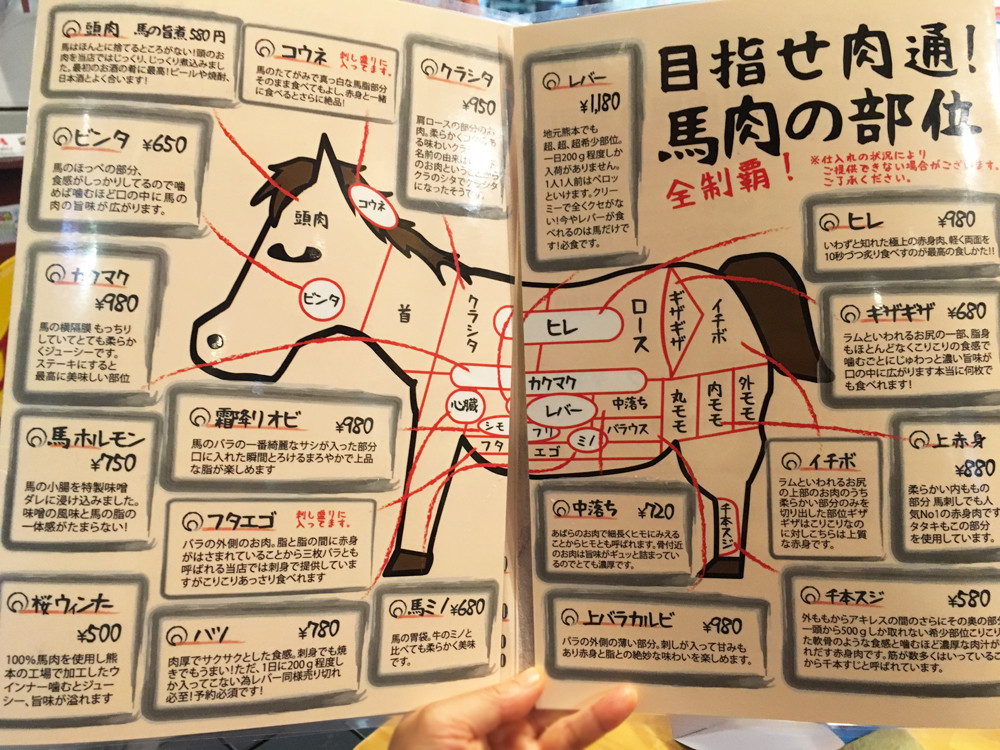 頭肉 馬の旨煮580円
馬はほんとに捨てるところがない!頭のお
肉を当店ではじっくり、じっくり煮込みまし
た。最初のお酒の肴に最高!ビールや焼酎、
日本酒とよく合います!
コウネ
刺し盛りに
入ってます。
馬のたてがみで真っ白な馬脂部分
そのまま食べてもよし、赤身と一緒
に食べるとさらに絶品!
クラシタ
¥950
肩ロースの部分のお
肉。柔らかくコ
る味わいクラ
名前の由来は
のお肉ということから
クラのシタでクラシタ
になったそうです。
ビンタ ¥650
馬のほっぺの部分、
食感がしっかりしてるので噛
めば噛むほど口の中に馬の
肉の旨味が広がります。
カクマク
¥980
馬の横隔膜 もっちり
していてとても柔ら
かくジューシーです。
ステーキにすると
最高に美味しい部位
霜降りオビ ¥980
馬のバラの一番綺麗なサシが入った部分
口に入れた瞬間とろけるまろやかで上品
な脂が楽しめます
馬ホルモン
¥750
馬の小腸を特製味噌
ダレに浸け込みました。
味噌の風味と馬の脂の
一体感がたまらない!
フタエゴ
刺し盛りに
入ってます。
バラの外側のお肉。脂と脂の間に赤身
がはさまれていることから三枚バラとも
呼ばれる当店では刺身で提供していま
すがこりこりあっさり食べれます
桜ウィンナー
¥500
100%馬肉を使用し熊
本の工場で加工したウ
インナー噛むとジュー
シー、旨味が溢れます
ハツ ¥780
肉厚でサクサクとした食感。刺身でも焼
きでもうまい!ただ、1日に200g程度し
か入ってこない為レバー同様売り切れ
必至!予約必須です!
馬ミノ ¥680
馬の胃袋。牛のミノと
比べても柔らかく美味
です。
頭肉
コウネ
ビンタ
首
クラシタ
心臓
シモ
フタ
ヒレ
カクマク
レバー
フリ
エゴ
ミノ
中落ち
バラウス
ロース
ギザギザ
イチボ
丸モモ
内モモ
外モモ
千本スジ
レバー
¥1,180
地元熊本でも
超、超、超希少部位。
一日200g程度しか
入荷がありません。
1人1人前はペロッ
といけます。クリー
ミーで全くクセがな
い!今やレバーが食
べれるのは馬だけで
す!必食です。
目指せ肉通!
馬肉の部位
全制覇!
※仕入れの状況により
ご提供できない場合がございます。
ご了承ください。
ヒレ ¥980
いわずと知れた極上の赤身肉、軽く両面を
10秒づつ炙り食べすのが最高の食しかた!!
ギザギザ ¥680
ラムといわれるお尻の一部、脂身
もほとんどなくこりこりの食感で
噛むごとにじゅわっと濃い旨味が
口の中に広がります本当に何枚で
も食べれます!
上赤身
¥880
柔らかい内もも
部分 馬刺しでも人
気No1の赤身肉です
タタキもこの部分
を使用しています。
イチボ
ラムといわれるお尻
の上部のお肉のうち
柔らかい部分のみを
切り出した部位ギザ
ギザはこりこりなの
に対しこちらは上質
な赤身です。
中落ち ¥720
あばらのお肉で細長くヒモにみえる
ことからヒモとも呼ばれます。骨付近
のお肉は旨味がギュッと詰まってい
るのでとても濃厚です。
上バラカルビ ¥980
バラの外側の薄い部分。刺しが入って甘みも
あり赤身と脂との絶妙な味わいを楽しめます。
千本スジ ¥580
外ももからアキレスの間のさらにその奥の部分
一頭から500gしか取れない希少部位こりこり
た軟骨のような食感と噛むほど濃厚な肉汁が
れだす赤身肉です。筋が数多くはいっているこ
から千本すじと呼ばれています。